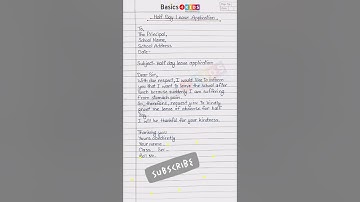 Basics 4 KIDS
Half Day Leave Application
To,
The Principal,
School Name,
School Address
Date:-
Subject- half day leave application
Dear Sir,
With due respect, I would like to inform
you that I want to leave the school after
lunch because suddenly I am suffering
from stomach pain.
So, therefore, request you to kindly
grant me leave of absence for half
day.
I will be thankful for your kindness.
Thanking you
Yours obediently
Your name -
Class - Sec -
Roll No.-
SUBSCRIBE